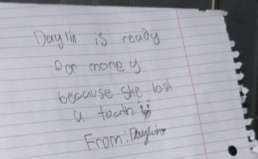 Daylin is ready
for mone y
because she lost
a tooth
From: Daylinn